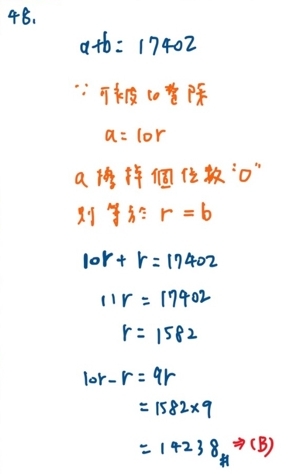 48.
a+b= 17402
∵ 可被10整除
a=10r
a擦掉個位數"0"
則等於 r=b
10r+r=17402
11r=17402
r=1582
10r-r=9r
=1582×9
=14238# ⇒(B)